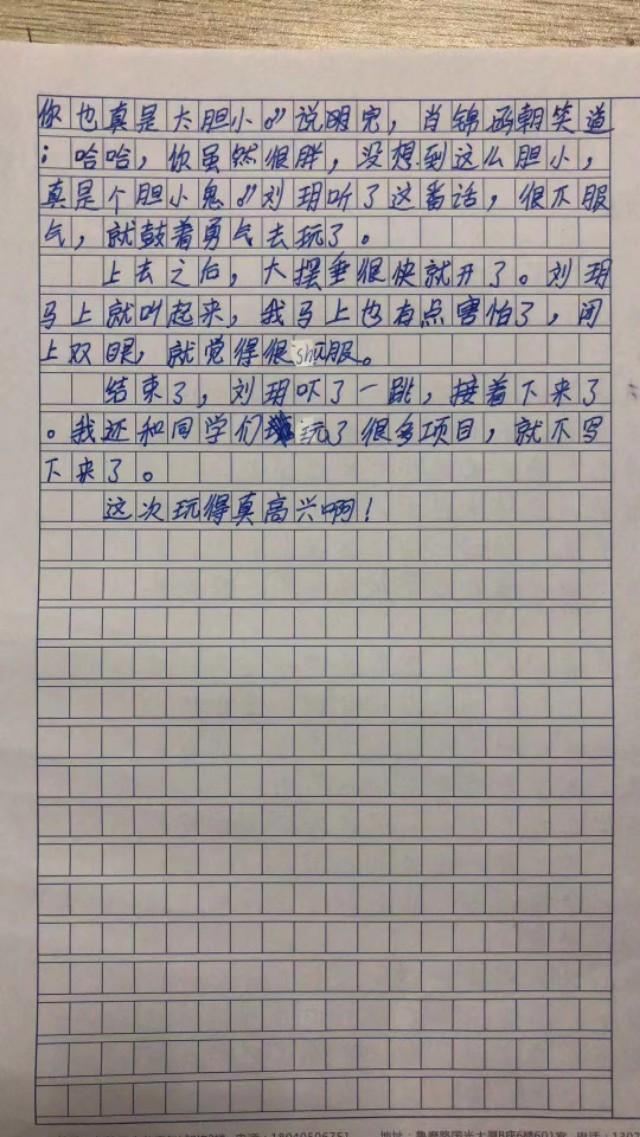 你也真是太胆小。”说明完，肖锦函朝笑道
；哈哈，你虽然很胖，没想到这么胆小，
真是个胆小鬼。”刘玥听了这番话，很不服
气，就鼓着勇气去玩了。
上去之后，大摆垂很快就开了。刘玥
马上就叫起来，我马上也有点害怕了，闭
上双眼，就觉得很shu服。
结束了，刘玥吓了一跳，接着下来了
。我还和同学们玩了很多项目，就不写
下来了。
这次玩得真高兴啊！
电话：18040506751 地址：鲁磨路国光大厦B座6楼601室